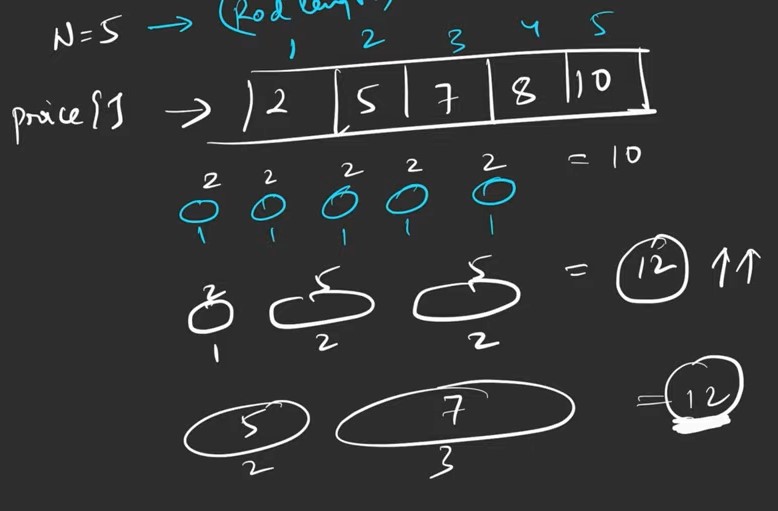 N=5 → (Rod length)
1 2 3 4 5
price[] → 2 5 7 8 10
2 2 2 2 2 = 10
1 1 1 1 1
2 5 5 = 12 ↑↑
1 2 2
5 7 = 12
2 3